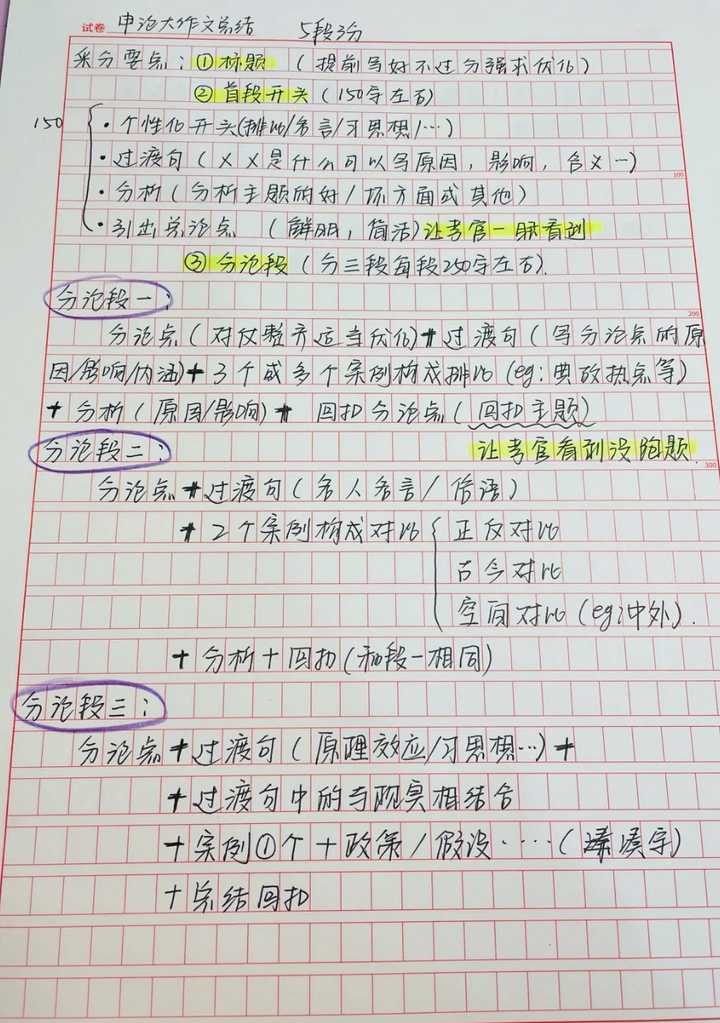 试卷 申论大作文总结 5段3分
采分要点：①标题（提前写好不过分强求优化）
②首段开头（150字左右）
150
·个性化开头(排比/名言/习思想/…)
·过渡句（××是什么可以写原因，影响，含义…）
·分析（分析主题的好/坏方面或其他）
·引出总论点（鲜明，简洁)让考官一眼看到
100
③分论段（分三段每段250字左右).
分论段一：
200
分论点（对仗整齐适当优化)+过渡句（写分论点的原
因/影响/内涵)+3个或多个案例构成排比(eg:典故热点等)
+分析（原因/影响)+回扣分论点（回扣主题）
分论段二：让考官看到没跑题.
300
分论点+过渡句（名人名言/俗语）
+2个案例构成对比{正反对比
古今对比
空间对比（eg:中外）.
+分析+回扣(和段一相同)
分论段三：
分论点+过渡句（原理效应/习思想…)+
+过渡句中的与现实相结合
+案例①个+政策/假设····（凑字）
+总结回扣